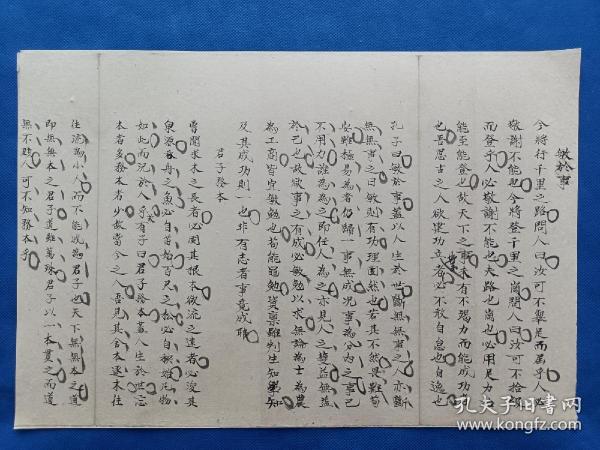 敏於事
今將行千里之路問人曰汝可不舉足而為乎人必
敬謝不能也今將登千里之崗問人曰汝可不捨
而登乎人必敬謝不能也夫路也崗也必用足力
能至能登也故天下之事未有不竭力而能成功者
也吾思古之人欲樂功立業者必不敢自怠也自逸也
孔子曰敏於事蓋以人生於世斷無無事之人亦斷
無無事之日敏則有功理固然也若其不然畏難苟
安雖極易為者仍歸一事無成況事為分內之事己
不用力誰為為之即任人為之亦見人之獲益無益
於己也故欲事之有成必敏勉以求無論為士為農
為工商皆宜敏勉也苟能黽勉資稟雖判生知學知
及其成功則一也非有志者事竟成歟
君子務本
嘗聞求木之長者必固其根本欲流之遠者必浚其
泉源吞舟之魚必自
如此而況於人乎有子曰君子務本蓋人生於世忘
本者多務本者少故當今之人吾見其舍本逐末往
往流為小人而不能成為君子也天下無無本之道
即無無本之君子道雖萬殊君子以一本貫之而道
無不 人可不知務本乎
孔夫子旧书网
www.kongfz.com